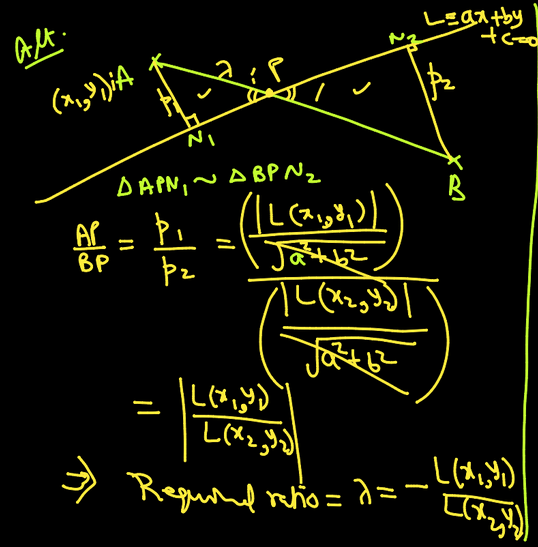 Alt.
L ≡ ax+by+c=0
(x₁,y₁) A
λ : 1
P
N₂
p₁
p₂
N₁
B
△APN₁ ~ △BPN₂
AP/BP = p₁/p₂ = (|L(x₁,y₁)|/√(a²+b²)) / (|L(x₂,y₂)|/√(a²+b²))
= |L(x₁,y₁)/L(x₂,y₂)|
⇒ Required ratio = λ = -L(x₁,y₁)/L(x₂,y₂)